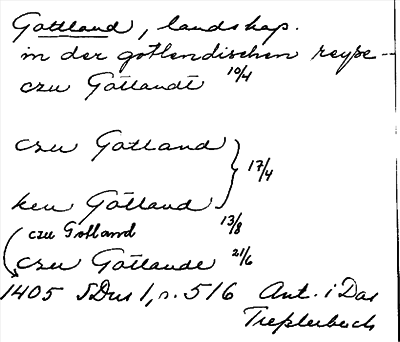 Gottland, landskap.
in der gotlendischen reyse -
czu Gotlandt 10/4
czu Gotland
17/4
ken Gotland 13/8
czu Gotland
czu Gotlande 21/6
1405 SDns 1, s. 516 Ant. i Das
Tresslerbuch